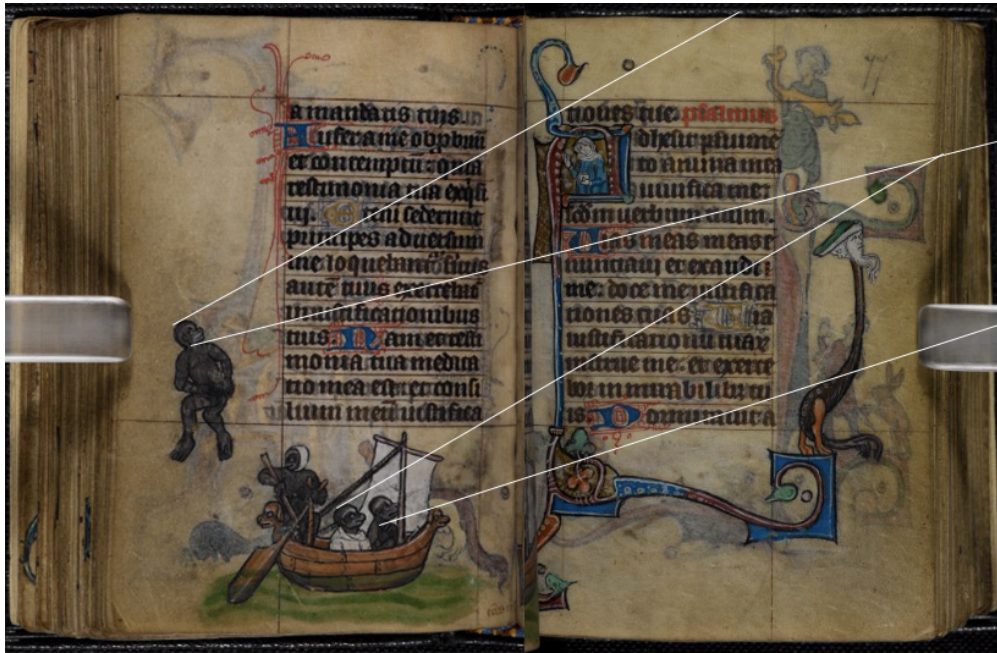 a mandatis tuis.
Aufer a me obprobriū
et contemptū: quia
testimonia tua exqisi
ui. Etenim sederunt
principes aduersum
me loquebant᷑ seruus
autē tuus
in iustificationibus
tuis. Nam et testi
monia tua medita
tio mea est: et consi
lium meū iustifica
tiones tue. psalmus
Adhesit pauimē
to anima mea
uiuifica me:
scdm uerbum tuum.
Uias meas meas e
nuntiaui et exaudi:
me: doce me iustifica
tiones tuas Uia
iustificationū tuar
instrue me: et exerce
bor in mirabilibꝫ tu
is. Dormitauit a